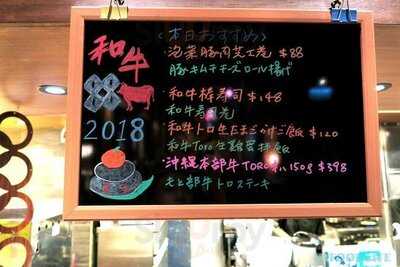 和牛
2018
<本日おすすめ>
泡菜豚肉芝士卷 $88
豚キムチチーズロール揚げ
和牛棒寿司 $148
和牛寿司
和牛トロ生たまごかけご飯 $120
和牛Toro生雞蛋拌飯
沖縄本部牛TORO 150g $398
もと部牛トロステーキ